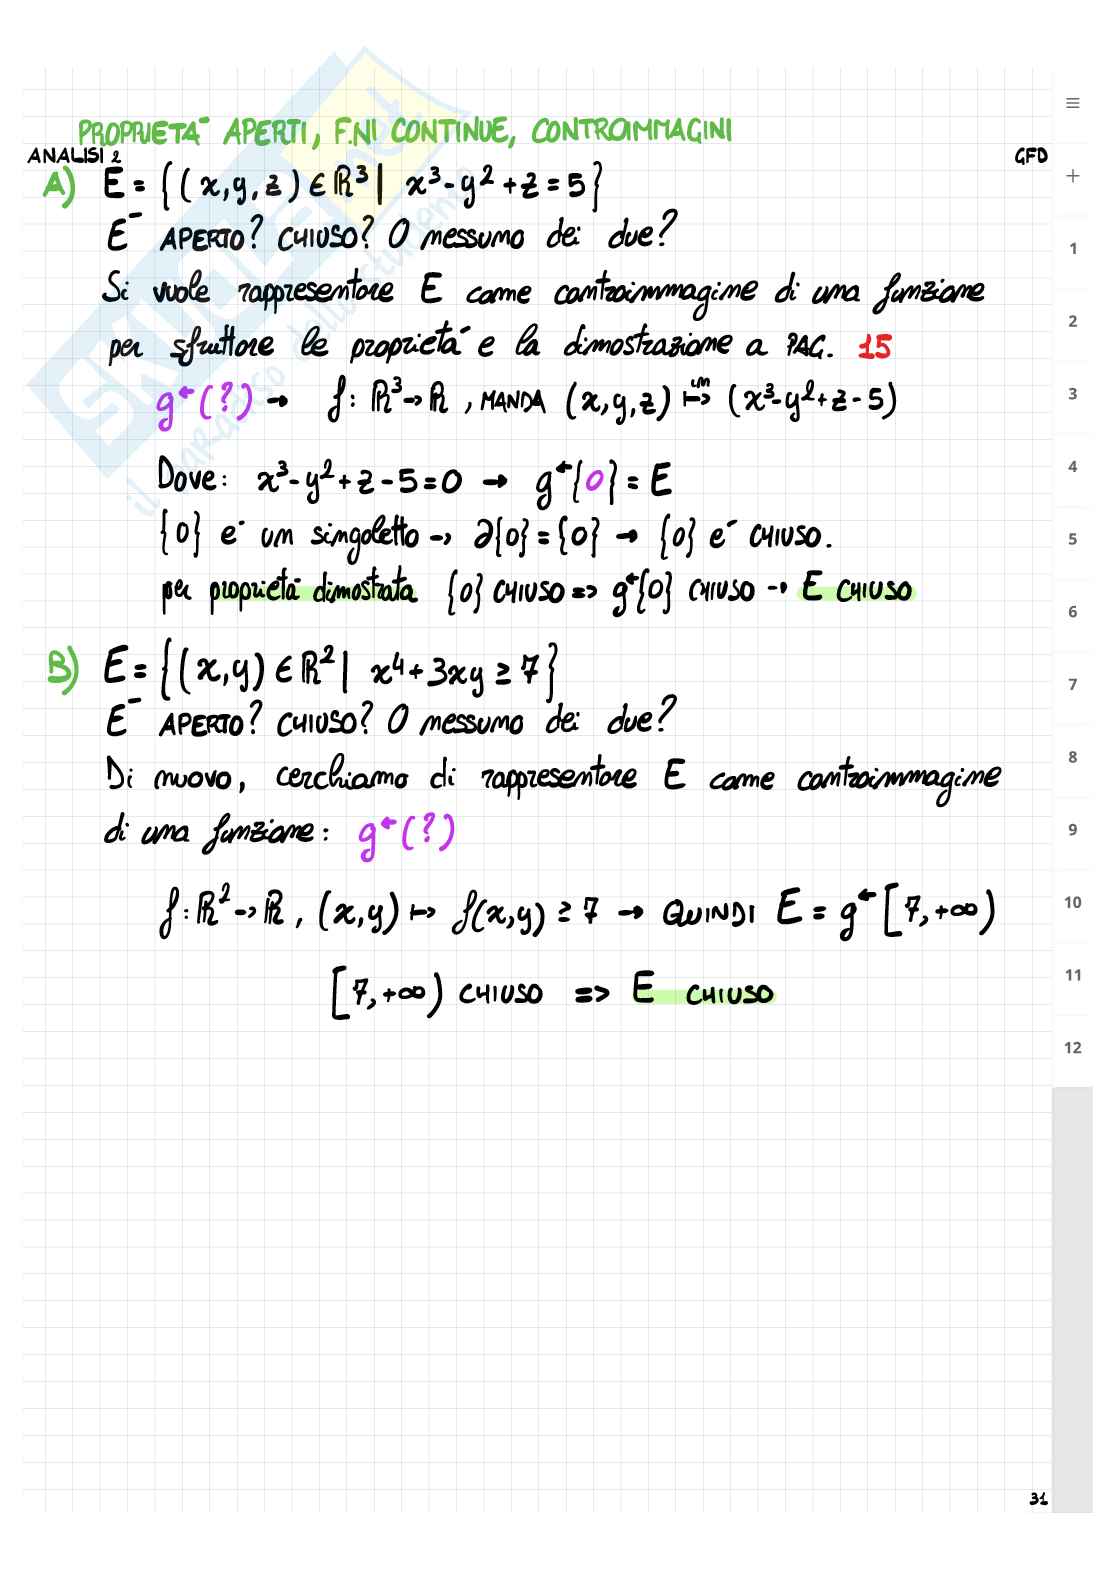 PROPRIETA' APERTI, F.NI CONTINUE, CONTROIMMAGINI
ANALISI 2
GFD
A) E = {(x,y,z) ∈ ℝ³ | x³-y²+z=5}
E' APERTO? CHIUSO? O nessuno dei due?
Si vuole rappresentare E come controimmagine di una funzione
per sfruttare le proprietà e la dimostrazione a PAG. 15
g←(?) → f: ℝ³→ℝ, MANDA (x,y,z) ↦ in (x³-y²+z-5)
Dove: x³-y²+z-5=0 → g←{0} = E
{0} e' un singoletto → ∂{0} = {0} → {0} e' CHIUSO.
per proprietà dimostrata {0} CHIUSO => g←{0} CHIUSO → E CHIUSO
B) E = {(x,y) ∈ ℝ² | x⁴+3xy ≥ 7}
E' APERTO? CHIUSO? O nessuno dei due?
Di nuovo, cerchiamo di rappresentare E come controimmagine
di una funzione: g←(?)
f: ℝ²→ℝ, (x,y) ↦ f(x,y) ≥ 7 → QUINDI E = g←[7,+∞)
[7,+∞) CHIUSO => E CHIUSO
31
SKUOLA.net
il paradiso dello studente
1
2
3
4
5
6
7
8
9
10
11
12